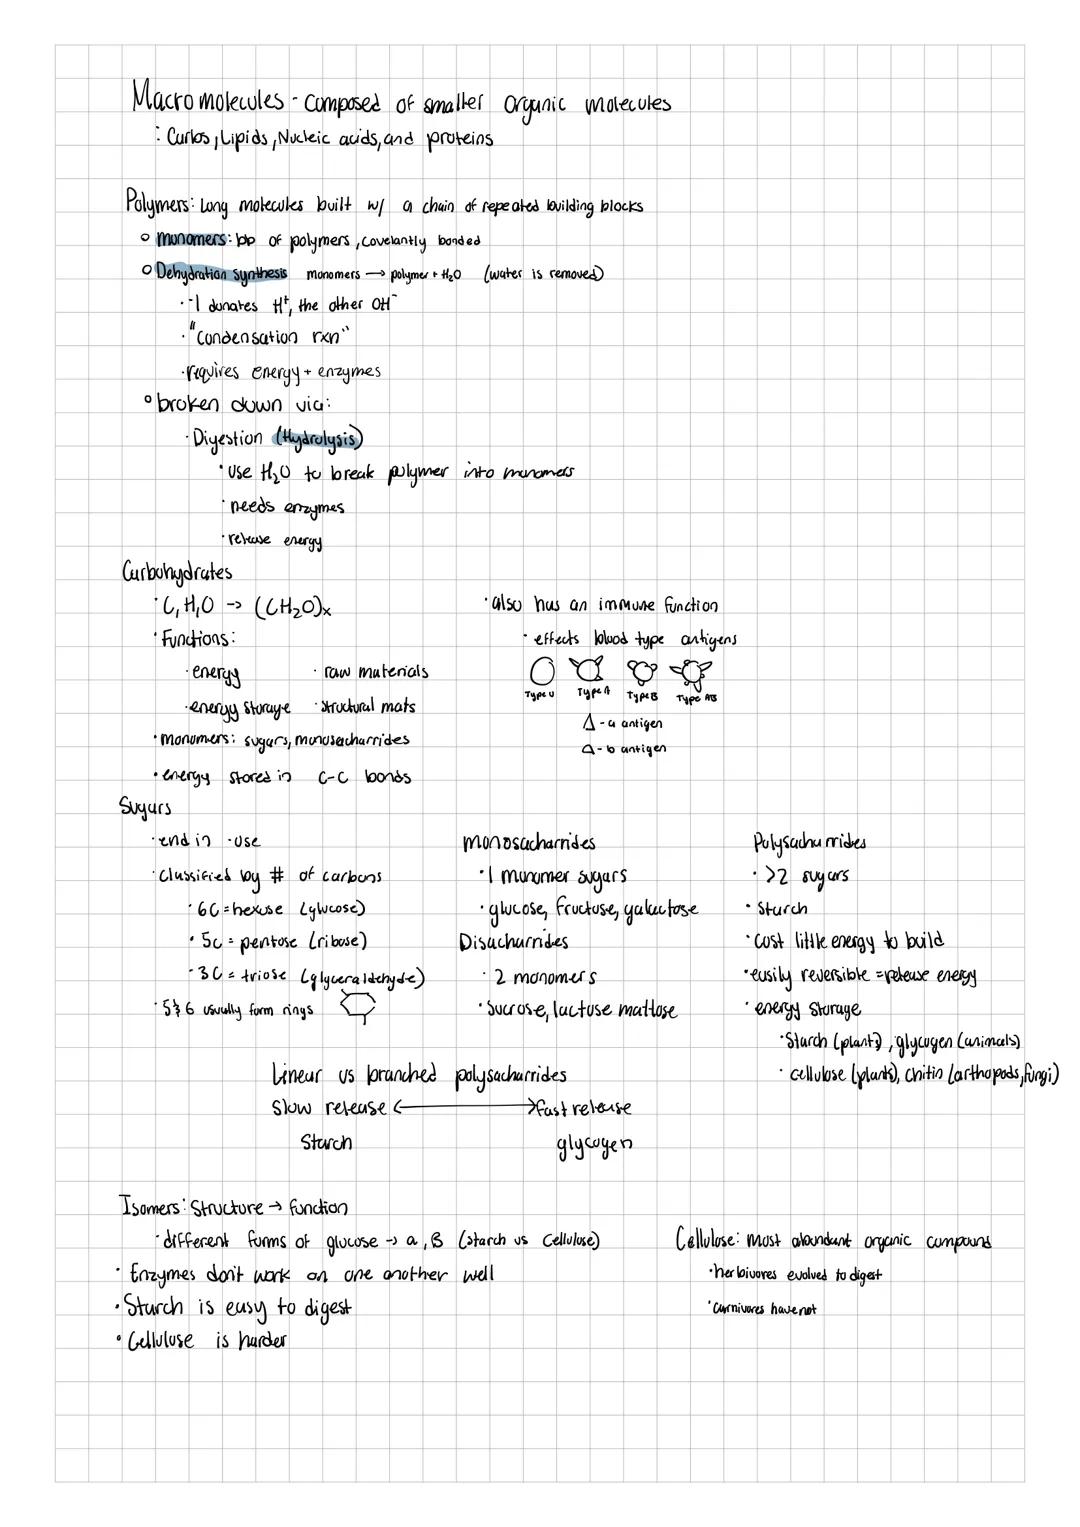 Macromolecules - composed of smaller organic molecules
: Carbs, Lipids, Nucleic acids, and proteins
Polymers: Long molecules built w/ a chain of repeated building blocks
○ monomers: bb of polymers, covelantly bonded
○ Dehydration synthesis monomers → polymer + H₂O (water is removed)
· -1 donates H⁺, the other OH⁻
· "condensation rxn"
· requires energy + enzymes
○ broken down via:
· Digestion (Hydrolysis)
· use H₂O to break polymer into monomers
· needs enzymes
· release energy
Carbohydrates
· C, H, O -> (CH₂O)x
· Functions:
· energy · raw materials
· energy storage · structural mats
· monomers: sugars, monosacharrides
· energy stored in C-C bonds
· also has an immune function
· effects blood type antigens
Type O Type A Type B Type AB
Δ - a antigen
- b antigen
Sugars
· end in -ose
· classified by # of carbons
· 6C = hexose (glucose)
· 5C = pentose (ribose)
· 3C = triose (glyceraldehyde)
· 5 & 6 usually form rings
monosacharrides
· 1 monomer sugars
· glucose, fructose, galactose
Disacharrides
· 2 monomers
· sucrose, lactose maltose
Polysacharrides
· >2 sugars
· Starch
· cost little energy to build
· easily reversible = release energy
· energy storage
· Starch (plants), glycogen (animals)
· cellulose (plants), chitin (arthopods, fungi)
Linear vs branched polysacharrides
Slow release ⟷ fast release
Starch glycogen
Isomers: Structure → function
· different forms of glucose -> a, B (starch vs cellulose)
· Enzymes don't work on one another well
· Starch is easy to digest
· Cellulose is harder
Cellulose: most abundant organic compound
· herbivores evolved to digest
· carnivores have not